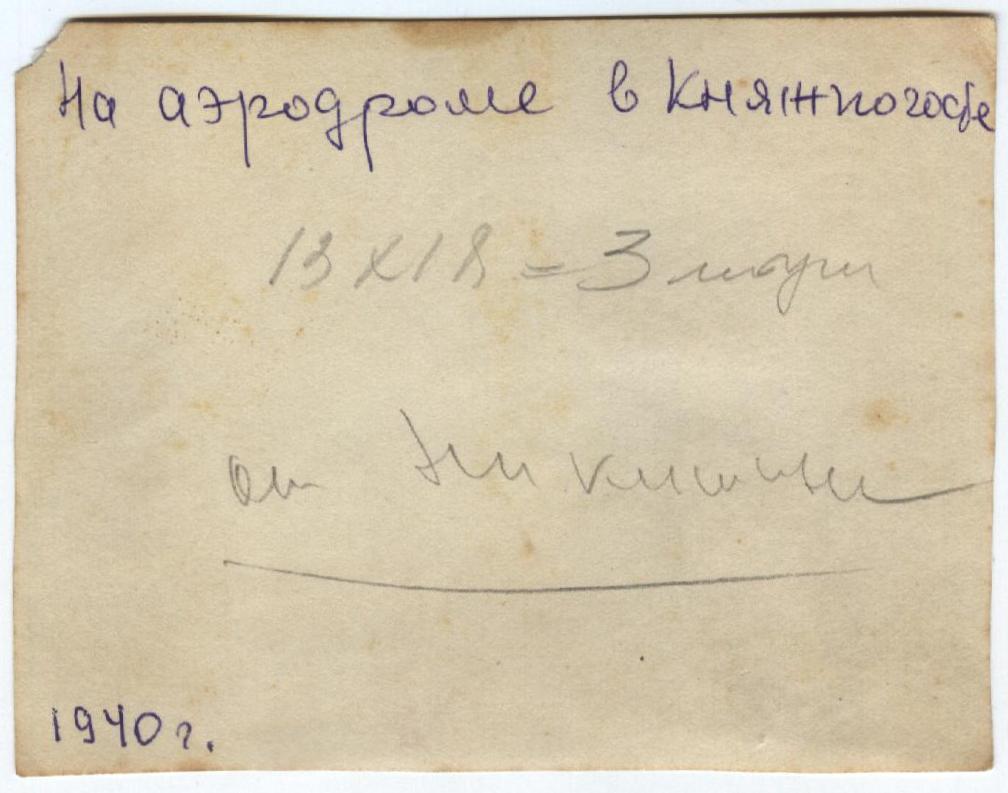 На аэродроме в Княжпогосте
13х18 = 3 штуки
от Никитина
1940 г.